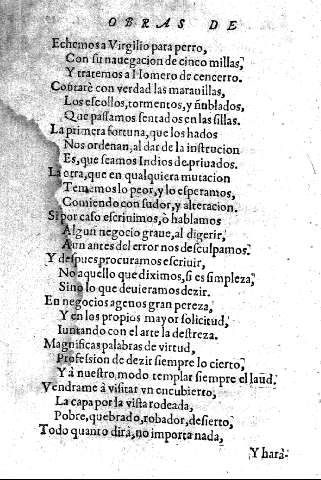 OBRAS DE
Echemos a Virgilio para perro,
Con su nauegacion de cinco millas,
Y tratemos a Homero de cencerro.
Contarè con verdad las marauillas,
Los escollos, tormentos, y ñublados,
Que passamos sentados en las sillas.
La primera fortuna, que los hados
Nos ordenan, al dar de la instrucion
Es, que seamos Indios depriuados.
La otra, que en qualquiera mutacion
Tememos lo peor, y lo esperamos,
Comiendo con sudor, y alteracion.
Si por caso escriuimos, ò hablamos
Algun negocio graue, al digerir,
Aun antes del error nos desculpamos.
Y despues procuramos escriuir,
No aquello que diximos, si es simpleza,
Sino lo que deuieramos dezir.
En negocios agenos gran pereza,
Y en los propios mayor solicitud,
Iuntando con el arte la destreza.
Magnificas palabras de virtud,
Profession de dezir siempre lo cierto,
Y à nuestro modo templar siempre el laud.
Vendrame à visitar vn encubierto,
La capa por la vista rodeada,
Pobre, quebrado, robador, desierto,
Todo quanto dirà, no importa nada,
Y harà